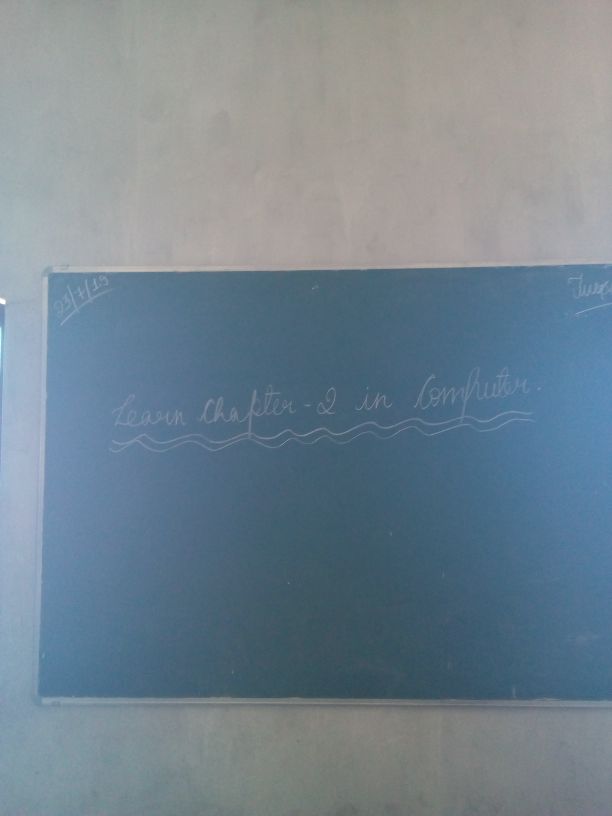 23/7/19
Learn Chapter-2 in Computer.